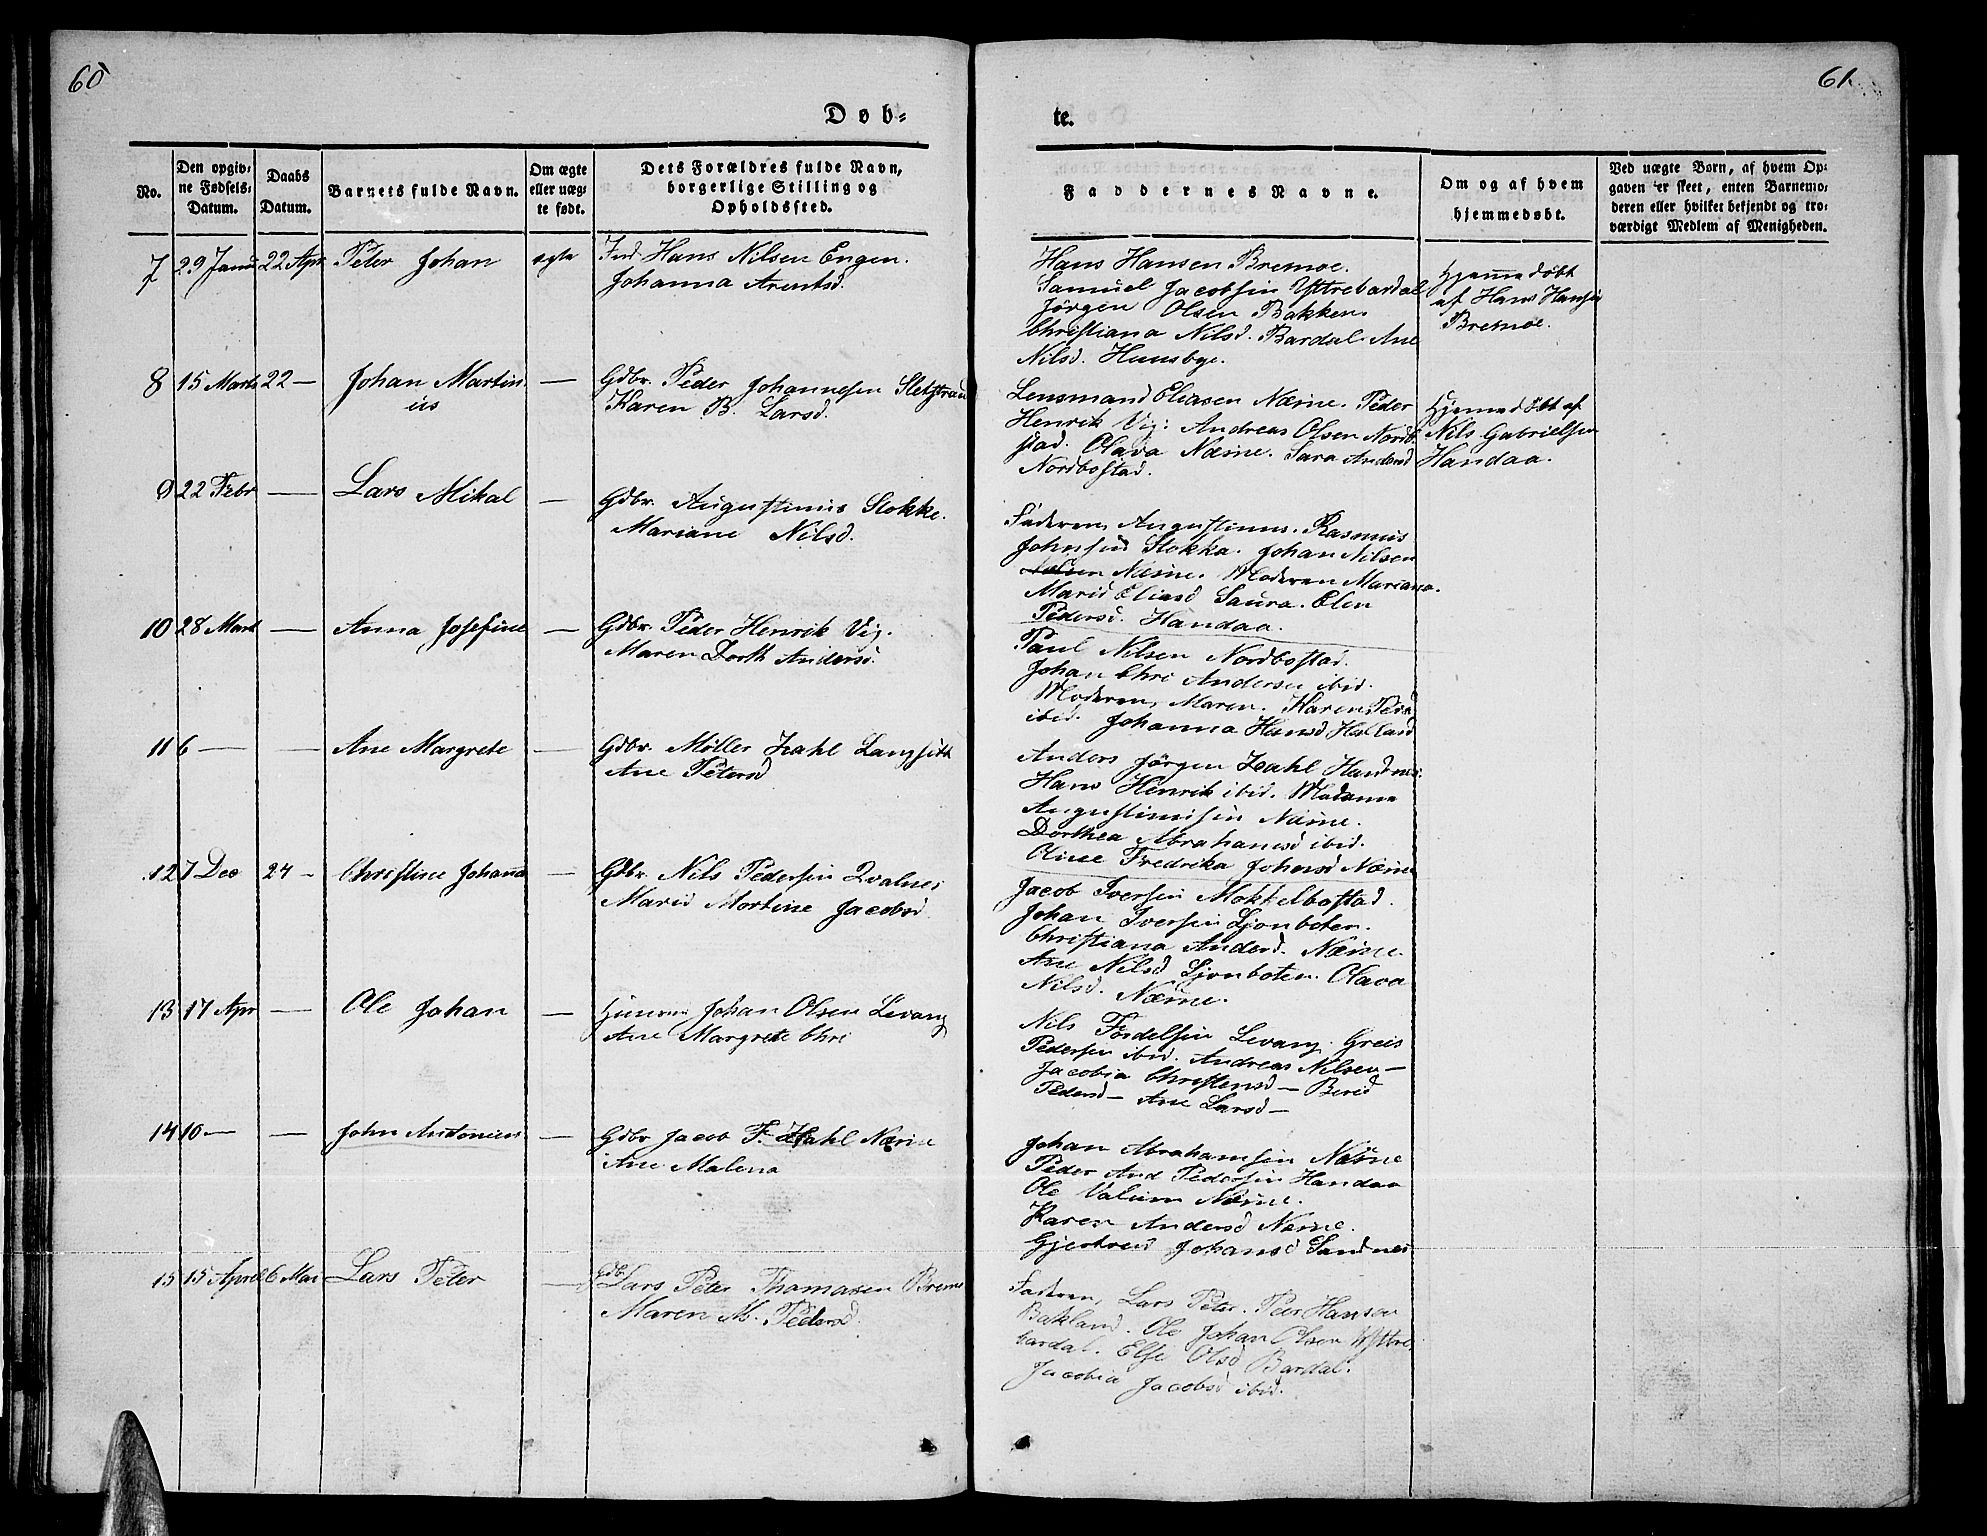 60
61
Døb-
te.
No.
Den opgiv-
ne Fødsels-
Datum.
Daabs
Datum.
Barnets fulde Navn.
Om ægte
eller uæg-
te født.
Dets Forældres fulde Navn,
borgerlige Stilling og
Opholdssted.
Faddernes Navne.
Om og af hvem
hjemmedøbt.
Ved uægte Børn, af hvem Op-
gaven er skeet, enten Barnemo-
deren eller hvilket bekjendt og tro-
værdigt Medlem af Menigheden.
7 29 Janu 22 Apr Peter Johan ægte Ind. Hans Nilsen Engen.
Johanna Arentsd.
Hans Hansen Bremoe.
Samuel Jacobsen Yttrebardal
Jørgen Olsen Bakken.
Christiana Nilsd. Bardal Ane
Nilsd. Huusbye.
Hjemmedøbt
af Hans Hansen
Bremoe.
8 15 Marts 22 — Johan Martin
ius — Gdbr. Peder Johannesen Sletstrand
Karen B. Larsd.
Lensmand Eliasen Næsne. Peder
Henrik Vig. Andreas Olsen Nordb.
stad. Olava Næsne. Sara Andersd
Nordbostad.
Hjemmedøbt af
Nils Gabrielsen
Handaa.
9 22 Febr — Lars Mikal — Gdbr. Augustinus Stokke.
Mariane Nilsd.
Faderen Augustinus. Rasmus
Johnsen Stokka. Johan Nilsen
Næsne. Moderen Mariana.
Marid Eliasd Saura. Elen
Pedersd. Handaa.
10 28 Mart — Anna Josefine — Gdbr. Peder Henrik Vig.
Maren Dorth Andersd.
Paul Nilsen Nordbostad.
Johan Chri Andersen ibid.
Moderen, Maren. Karen Pedr
ibid. Johanna Hansd Halland
11 6 — — Ane Margrete — Gdbr. Møller Zahl Langsett
Ane Petersd
Anders Jørgen Zahl Handnes.
Hans Henrik ibid. Madame
Augustinusen Næsne.
Dorthea Abrahamsd ibid.
Oline Fredrika Johansd Næsne
12 7 Dec 24 - Christine Johanna — Gdbr. Nils Pedersen Qvalnes
Marid Mortine Jacobsd
Jacob Iversen Mokkelbostad.
Johan Iversen Ljonboten.
Christiana Andersd. Næsne.
Ane Nilsd Ljonboten. Olava
Nilsd. Næsne.
13 17 Apr — Ole Johan — Huusm Johan Olsen Levang
Ane Margrete Chri
Nils Fordelsen Levang. Greis
Pedersen ibid. Andreas Nilsen —
Jacobia Christensd — Berit
Pedersd — Ane Larsd —
14 10 — — John Antonius — Gdbr Jacob F. Zahl Næsne
Ane Malena
Johan Abrahamsen Næsne
Peder And Pedersen Handaa
Ole Næsne.
Karen Andersd Næsne.
Gjertrud Johansd Sandnes
15 15 April 6 Mai Lars Peter — Gdbr. Lars Peter Thomasen Brem
Maren M. Pedersd.
Faderen, Lars Peter. Peer Hansen
Bakland. Ole Johan Olsen Yttre
bardal. Else Olsd Bardal.
Jacobia Jacobsd ibid.